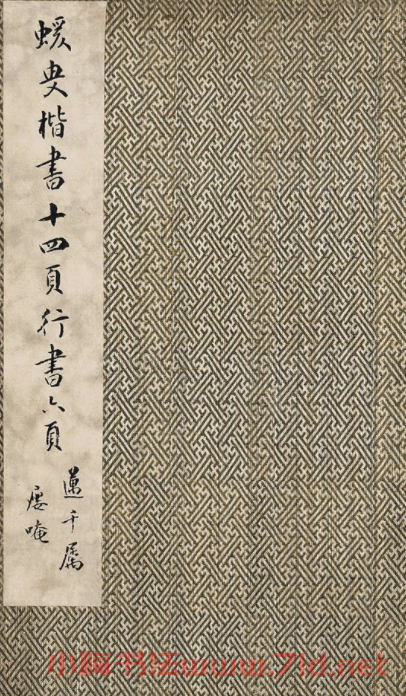 蝯叟楷書十四頁行書六頁
蓮千屬
唵
小楷书法www.7ld.net